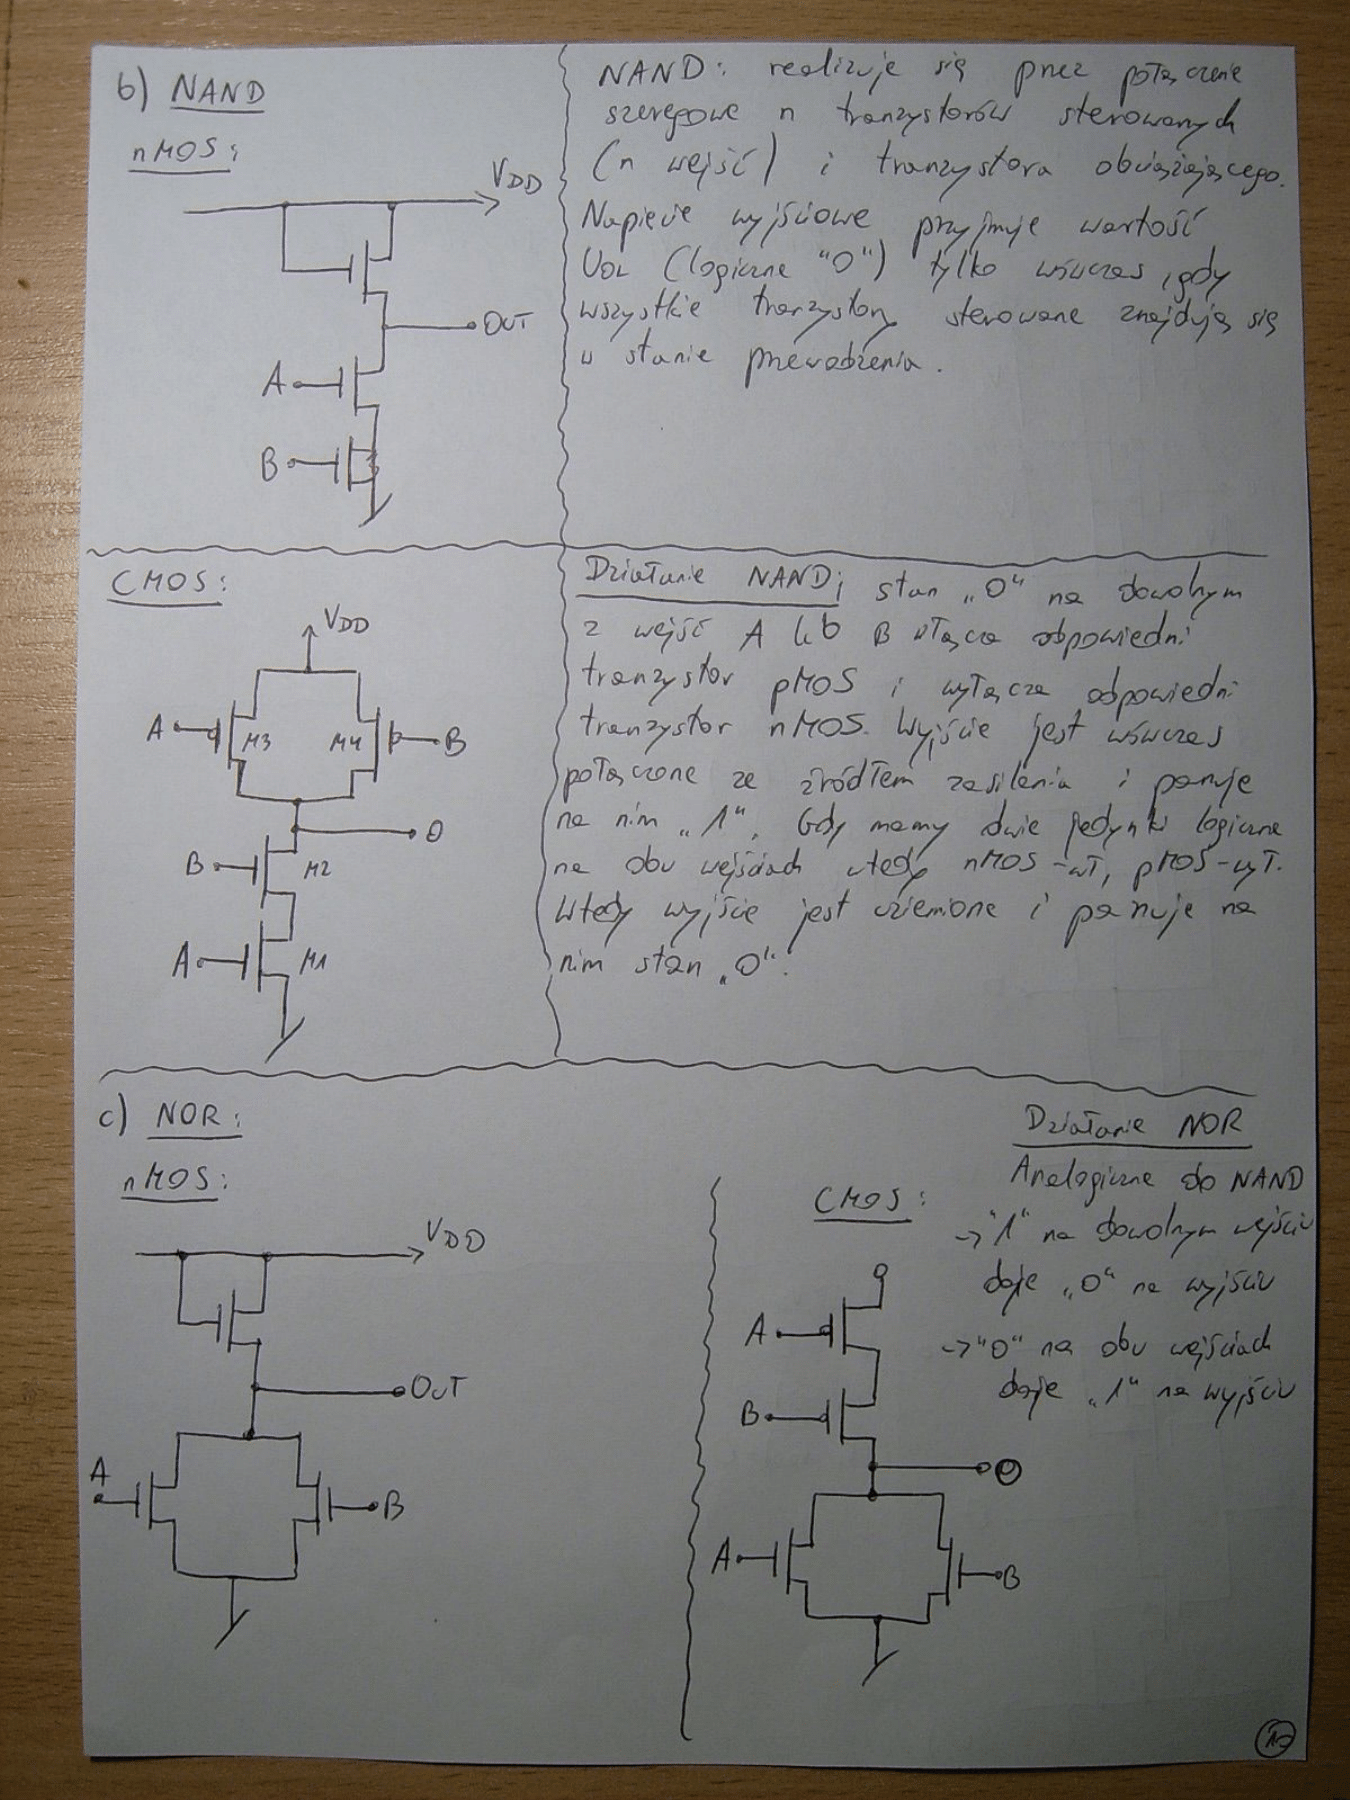 b) NAND
nMOS:
VDD
OUT
A
B
NAND: realizuje się przez połączenie
szeregowe n tranzystorów sterowanych
(n wejść) i tranzystora obciążającego.
Napięcie wyjściowe przyjmuje wartość
UOL (logiczne "0") tylko wówczas, gdy
wszystkie tranzystory sterowane znajdują się
w stanie przewodzenia.
CMOS:
VDD
A
M3
M4
B
O
B
M2
A
M1
Działanie NAND: stan „0" na dowolnym
z wejść A lub B włącza odpowiedni
tranzystor pMOS i wyłącza odpowiedni
tranzystor nMOS. Wyjście jest wówczas
połączone ze źródłem zasilania i panuje
na nim „1". Gdy mamy dwie jedynki logiczne
na obu wejściach wtedy nMOS-wł, pMOS-wył.
Wtedy wyjście jest uziemione i panuje na
nim stan „0".
c) NOR:
nMOS:
VDD
OUT
A
B
CMOS:
A
B
O
A
B
Działanie NOR
Analogiczne do NAND
-> "1" na dowolnym wejściu
daje „0" na wyjściu
-> "0" na obu wejściach
daje „1" na wyjściu